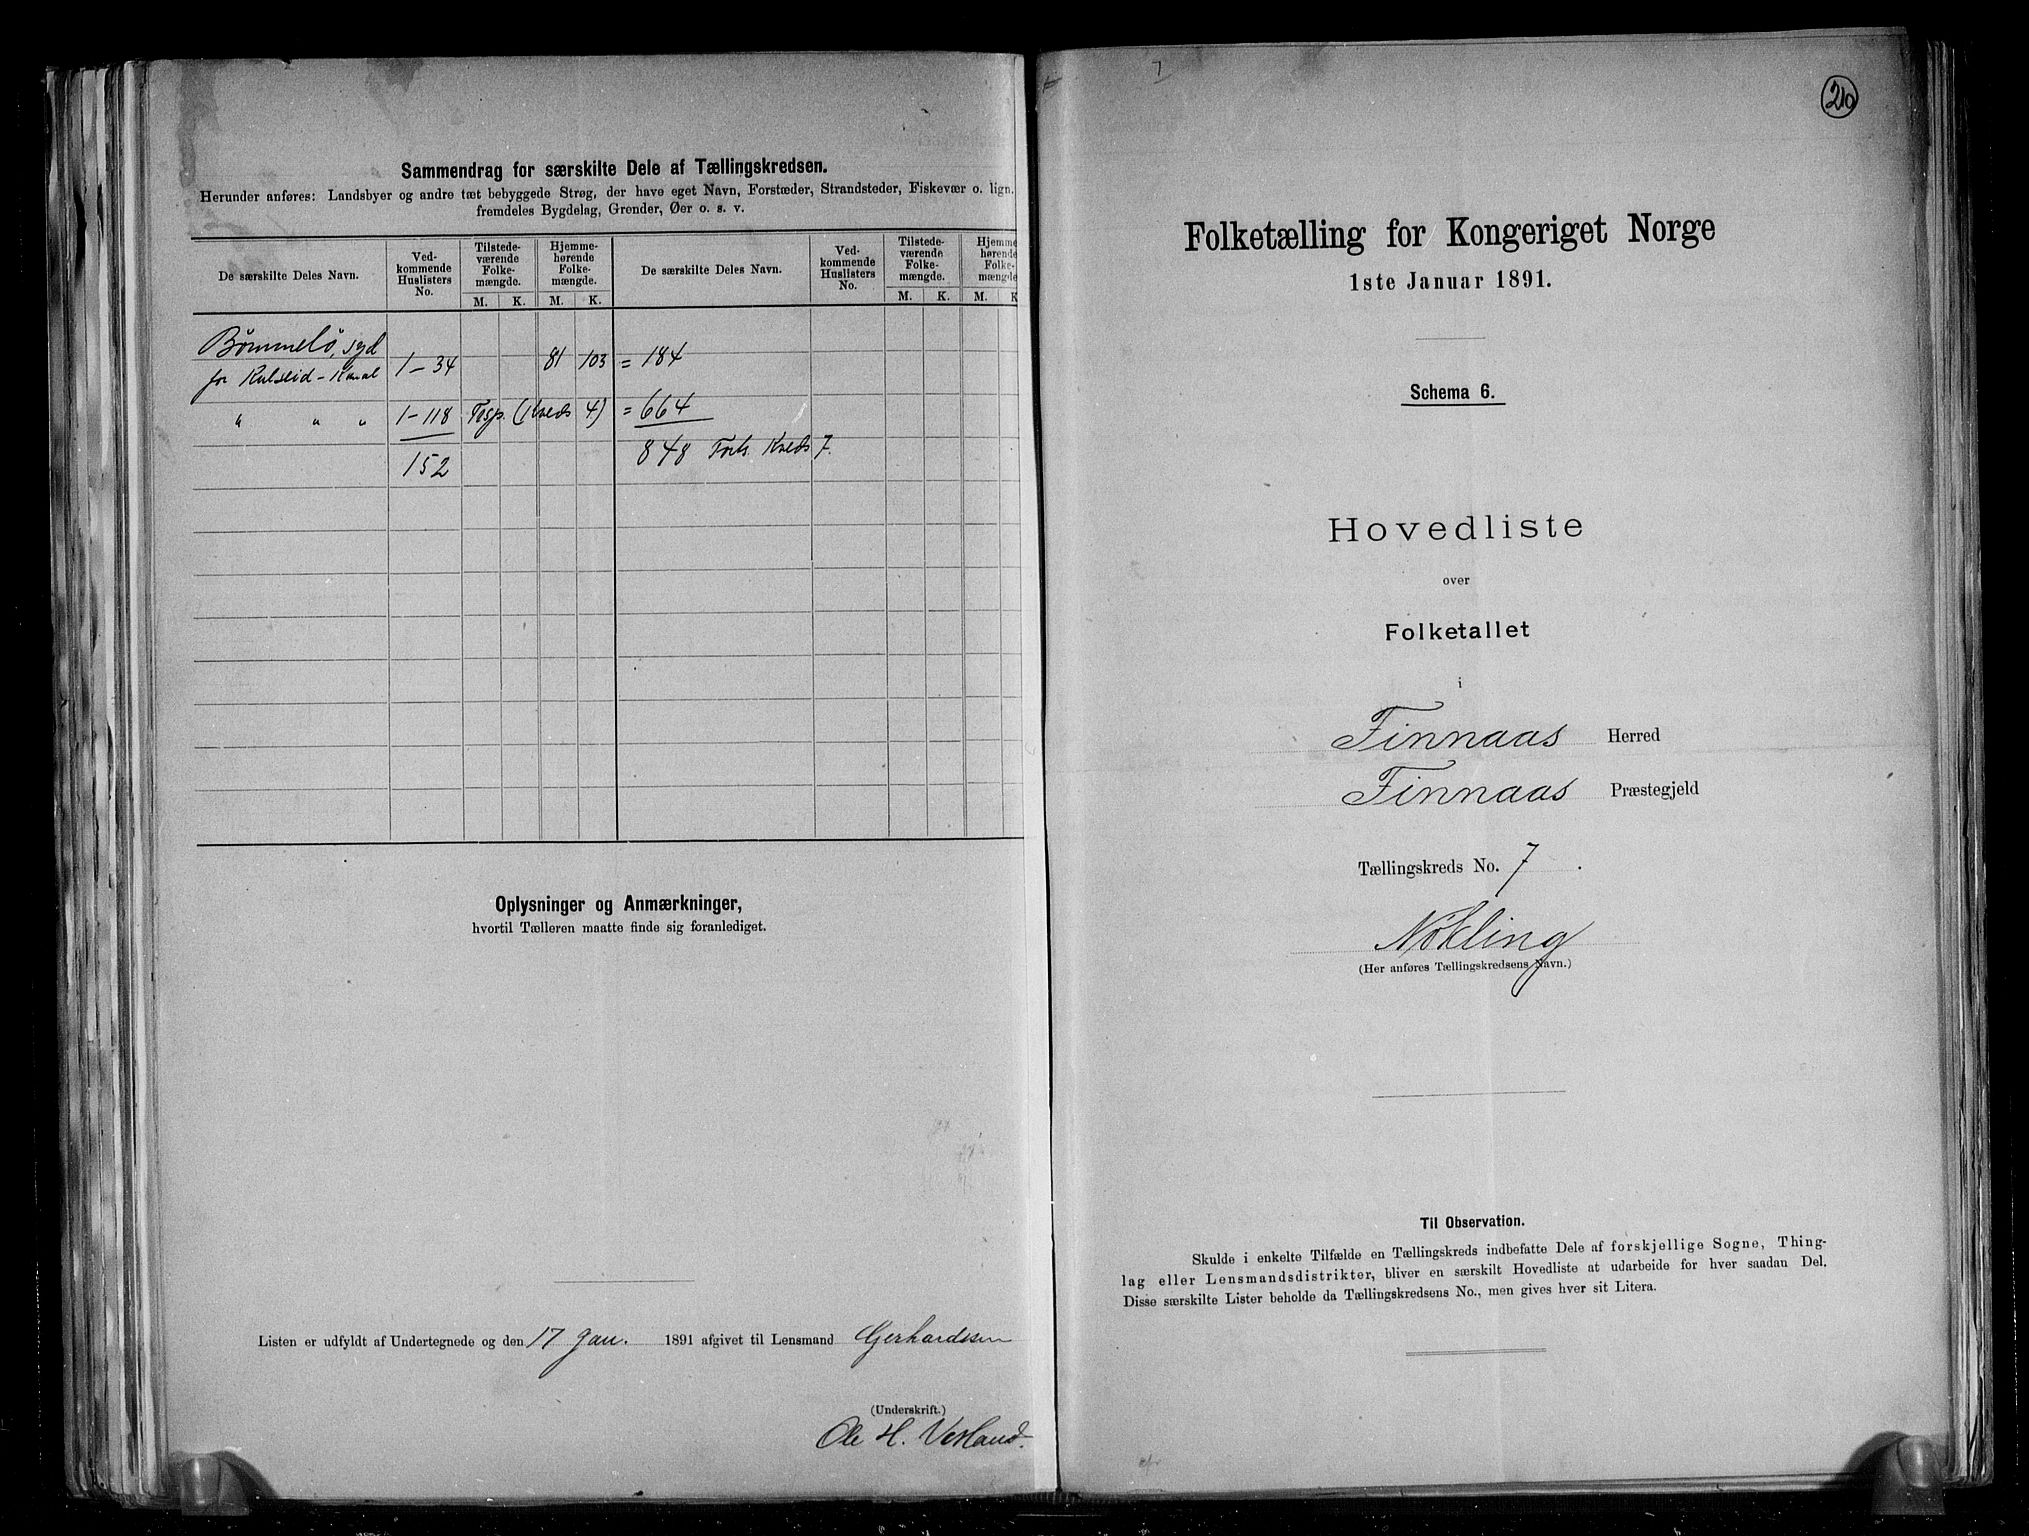 Sammendrag for særskilte Dele af Tællingskredsen.
Herunder anføres: Landsbyer og andre tæt bebyggede Strøg, der have eget Navn, Forstæder, Strandsteder, Fiskevær o. lign.
fremdeles Bygdelag, Grender, Øer o. s. v.
De særskilte Deles Navn. Ved-kommende Huslisters No. Tilstede-værende Folke-mængde. Hjemme-hørende Folke-mængde. De særskilte Deles Navn. Ved-kommende Huslisters No. Tilstede-værende Folke-mængde. Hjemme-hørende Folke-mængde
M. K. M. K. M. K. M. K
Bømmelö, syd
for Kulseid-Kanal 1-34 81 103 = 184
" " " 1-118 (Kreds 4) = 664
152 848 Forts. Kreds 7.
Oplysninger og Anmærkninger,
hvortil Tælleren maatte finde sig foranlediget.
Listen er udfyldt af Undertegnede og den 17 Jan. 1891 afgivet til Lensmand Gerhardssen
(Underskrift.)
Ole H. Vesland.
7
210
Folketælling for Kongeriget Norge
1ste Januar 1891.
Schema 6.
Hovedliste
over
Folketallet
i
Finnaas Herred
Finnaas Præstegjeld
Tællingskreds No. 7.
Nøkling
(Her anføres Tællingskredsens Navn.)
Til Observation.
Skulde i enkelte Tilfælde en Tællingskreds indbefatte Dele af forskjellige Sogne, Thing-
lag eller Lensmandsdistrikter, bliver en særskilt Hovedliste at udarbeide for hver saadan Del.
Disse særskilte Lister beholde da Tællingskredsens No., men gives hver sit Litera.